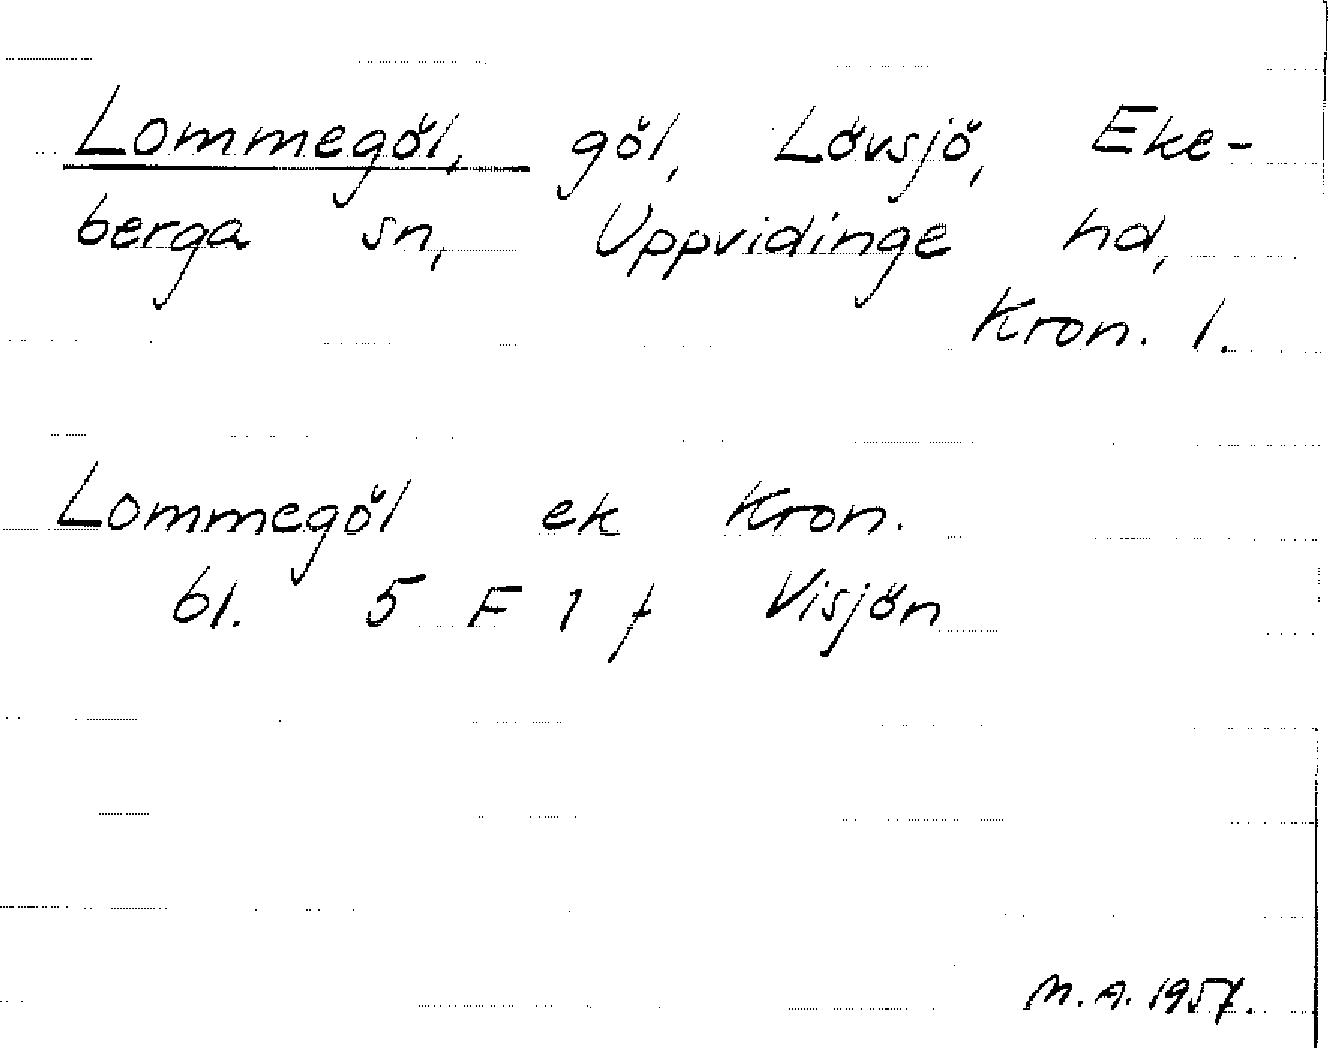 Lommegöl, göl, Lövsjö, Eke-
berga sn, Uppvidinge hd,
Kron. l.
Lommegöl ek Kron.
bl. 5 F 1 f Visjön
M.A. 1957.